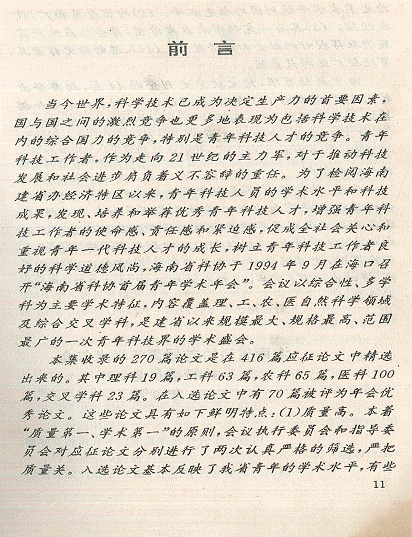 前言
当今世界,科学技术已成为决定生产力的首要因素,
国与国之间的激烈竞争也更多地表现为包括科学技术在
内的综合国力的竞争,特别是青年科技人才的竞争。青年
科技工作者,作为走向 21 世纪的主力军,对于推动科技
发展和社会进步肩负着义不容辞的重任。为了检阅海南
建省办经济特区以来,青年科技人员的学术水平和科技
成果,发现、培养和举荐优秀青年科技人才,增强青年科
技工作者的使命感、责任感和紧迫感,促成全社会关心和
重视青年一代科技人才的成长,树立青年科技工作者良
好的科学道德风尚,海南省科协于 1994 年 9 月在海口召
开“海南省科协首届青年学术年会”。会议以综合性、多学
科为主要学术特征,内容覆盖理、工、农、医自然科学领域
及综合交叉学科,是建省以来规模最大、规格最高、范围
最广的一次青年科技界的学术盛会。
本集收录的 270 篇论文是在 416 篇应征论文中精选
出来的。其中理科 19 篇,工科 63 篇,农科 65 篇,医科 100
篇,交叉学科 23 篇。在入选论文中有 70 篇被评为年会优
秀论文。这些论文具有如下鲜明特点:(1)质量高。本着
“质量第一、学术第一”的原则,会议执行委员会和指导委
员会对应征论文分别进行了两次认真严格的筛选,严把
质量关。入选论文基本反映了我省青年的学术水平,有些
11